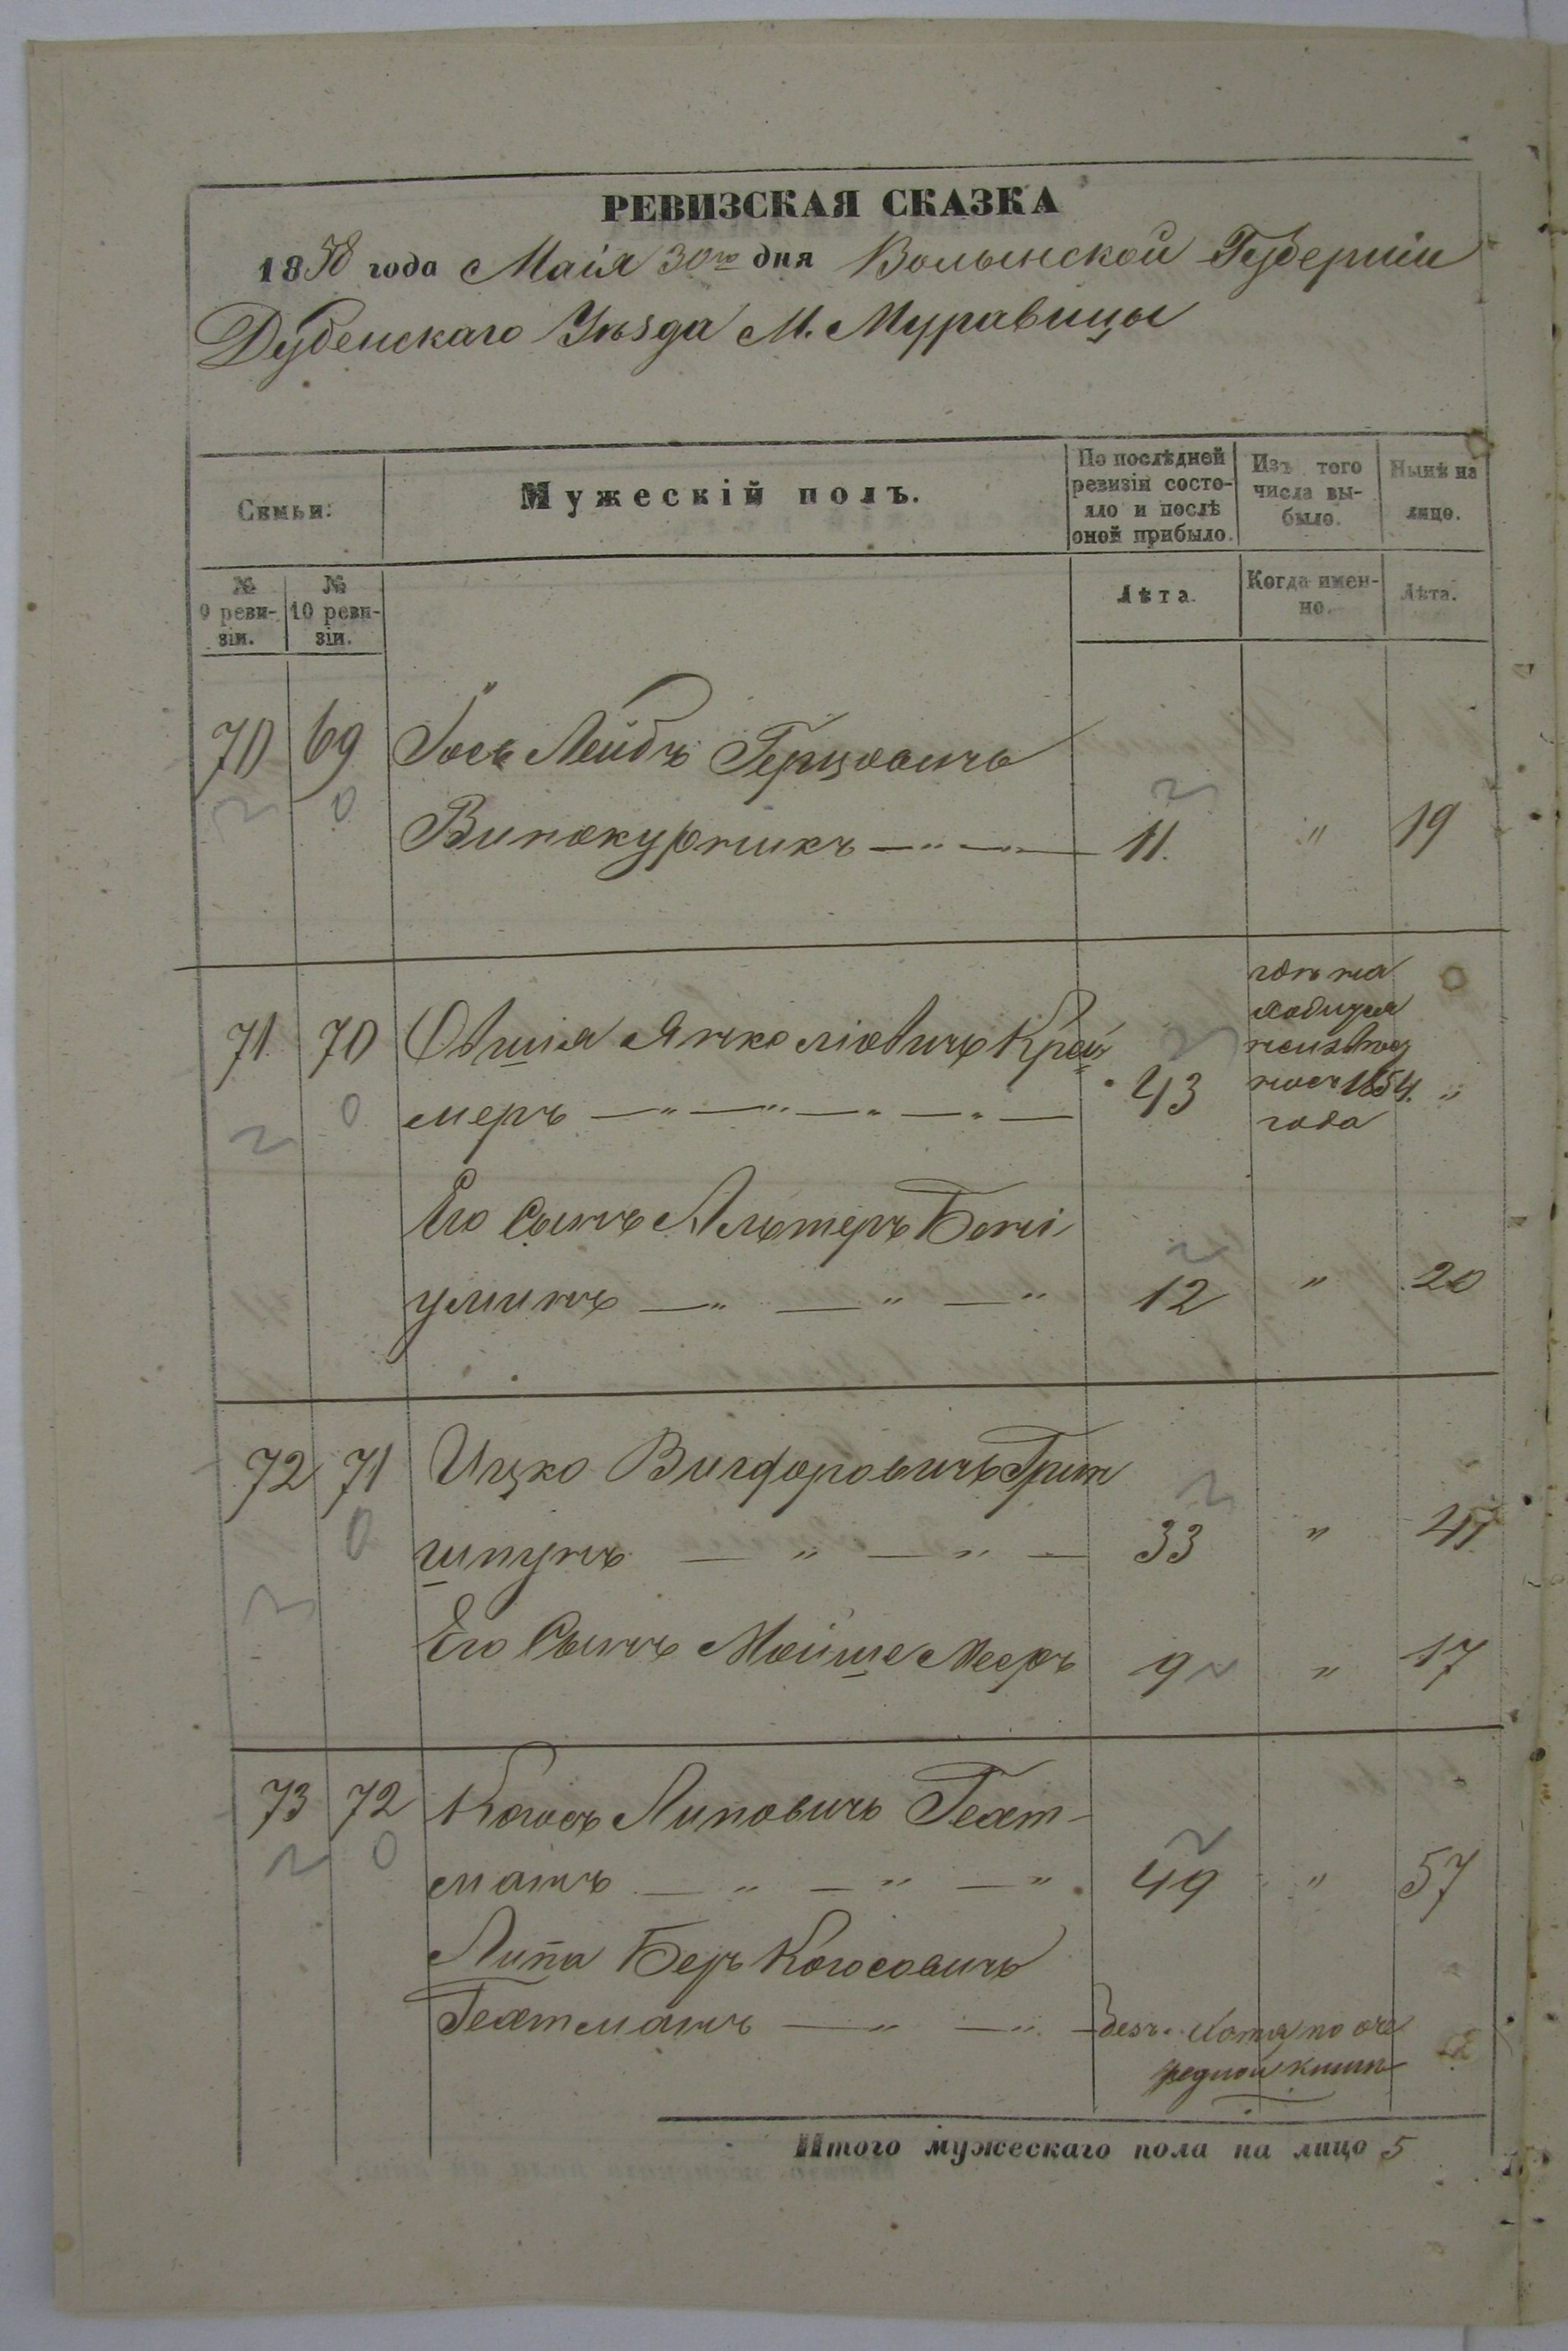 РЕВИЗСКАЯ СКАЗКА
1858 года Маія 30го дня Волынской Губерніи
Дубенскаго Уѣзда М. Муравицы
Семьи:
Мужескій полъ.
По послѣдней ревизіи состояло и послѣ оной прибыло.
Изъ того числа выбыло.
Нынѣ на лицо.
№ 9 ревизіи.
№ 10 ревизіи.
Лѣта.
Когда именно.
Лѣта.
70 69 Іось Лейбъ Герцовичъ
Винокурникъ 11. " 19
71. 70 Овшія Янкеліовичъ Крей
меръ 43
1854. "
года
Его Сынъ Альтеръ Бені
уминъ 12 " 20
72 71 Ицко Вигдоровичъ Грин
шпунъ 33 " 41
Его Сынъ Мойше Мееръ 9 " 17
73 72 Когосъ Липовичъ Гехт-
манъ 49 " 57
Липа Беръ Когосовичъ
Гехтманъ
по оче
редной книги
Итого мужескаго пола на лицо 5